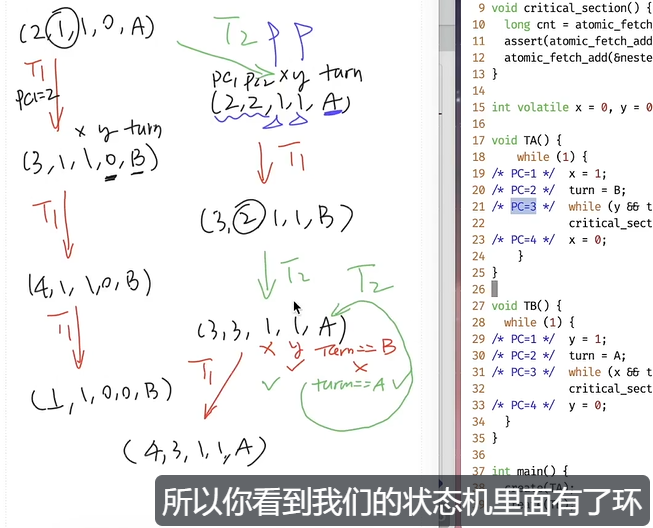 (2,1,1,0,A)
T1
PC1=2
x y turn
(3,1,1,0,B)
T1
(4,1,1,0,B)
T1
(1,1,0,0,B)
T2 P P
PC1 PC2 x y turn
(2,2,1,1,A)
T1
(3,2,1,1,B)
T2
T2
(3,3,1,1,A)
x y turn==B
✓ ×
✓ turn==A ✓
T1
(4,3,1,1,A)
9 void critical_section() {
10 long cnt = atomic_fetch
11 assert(atomic_fetch_add
12 atomic_fetch_add(&neste
13 }
14
15 int volatile x = 0, y = 0
16
17 void TA() {
18 while (1) {
19 /* PC=1 */ x = 1;
20 /* PC=2 */ turn = B;
21 /* PC=3 */ while (y && t
22 critical_sect
23 /* PC=4 */ x = 0;
24 }
25 }
26
27 void TB() {
28 while (1) {
29 /* PC=1 */ y = 1;
30 /* PC=2 */ turn = A;
31 /* PC=3 */ while (x && t
32 critical_sect
33 /* PC=4 */ y = 0;
34 }
35 }
36
37 int main() {
所以你看到我们的状态机里面有了环